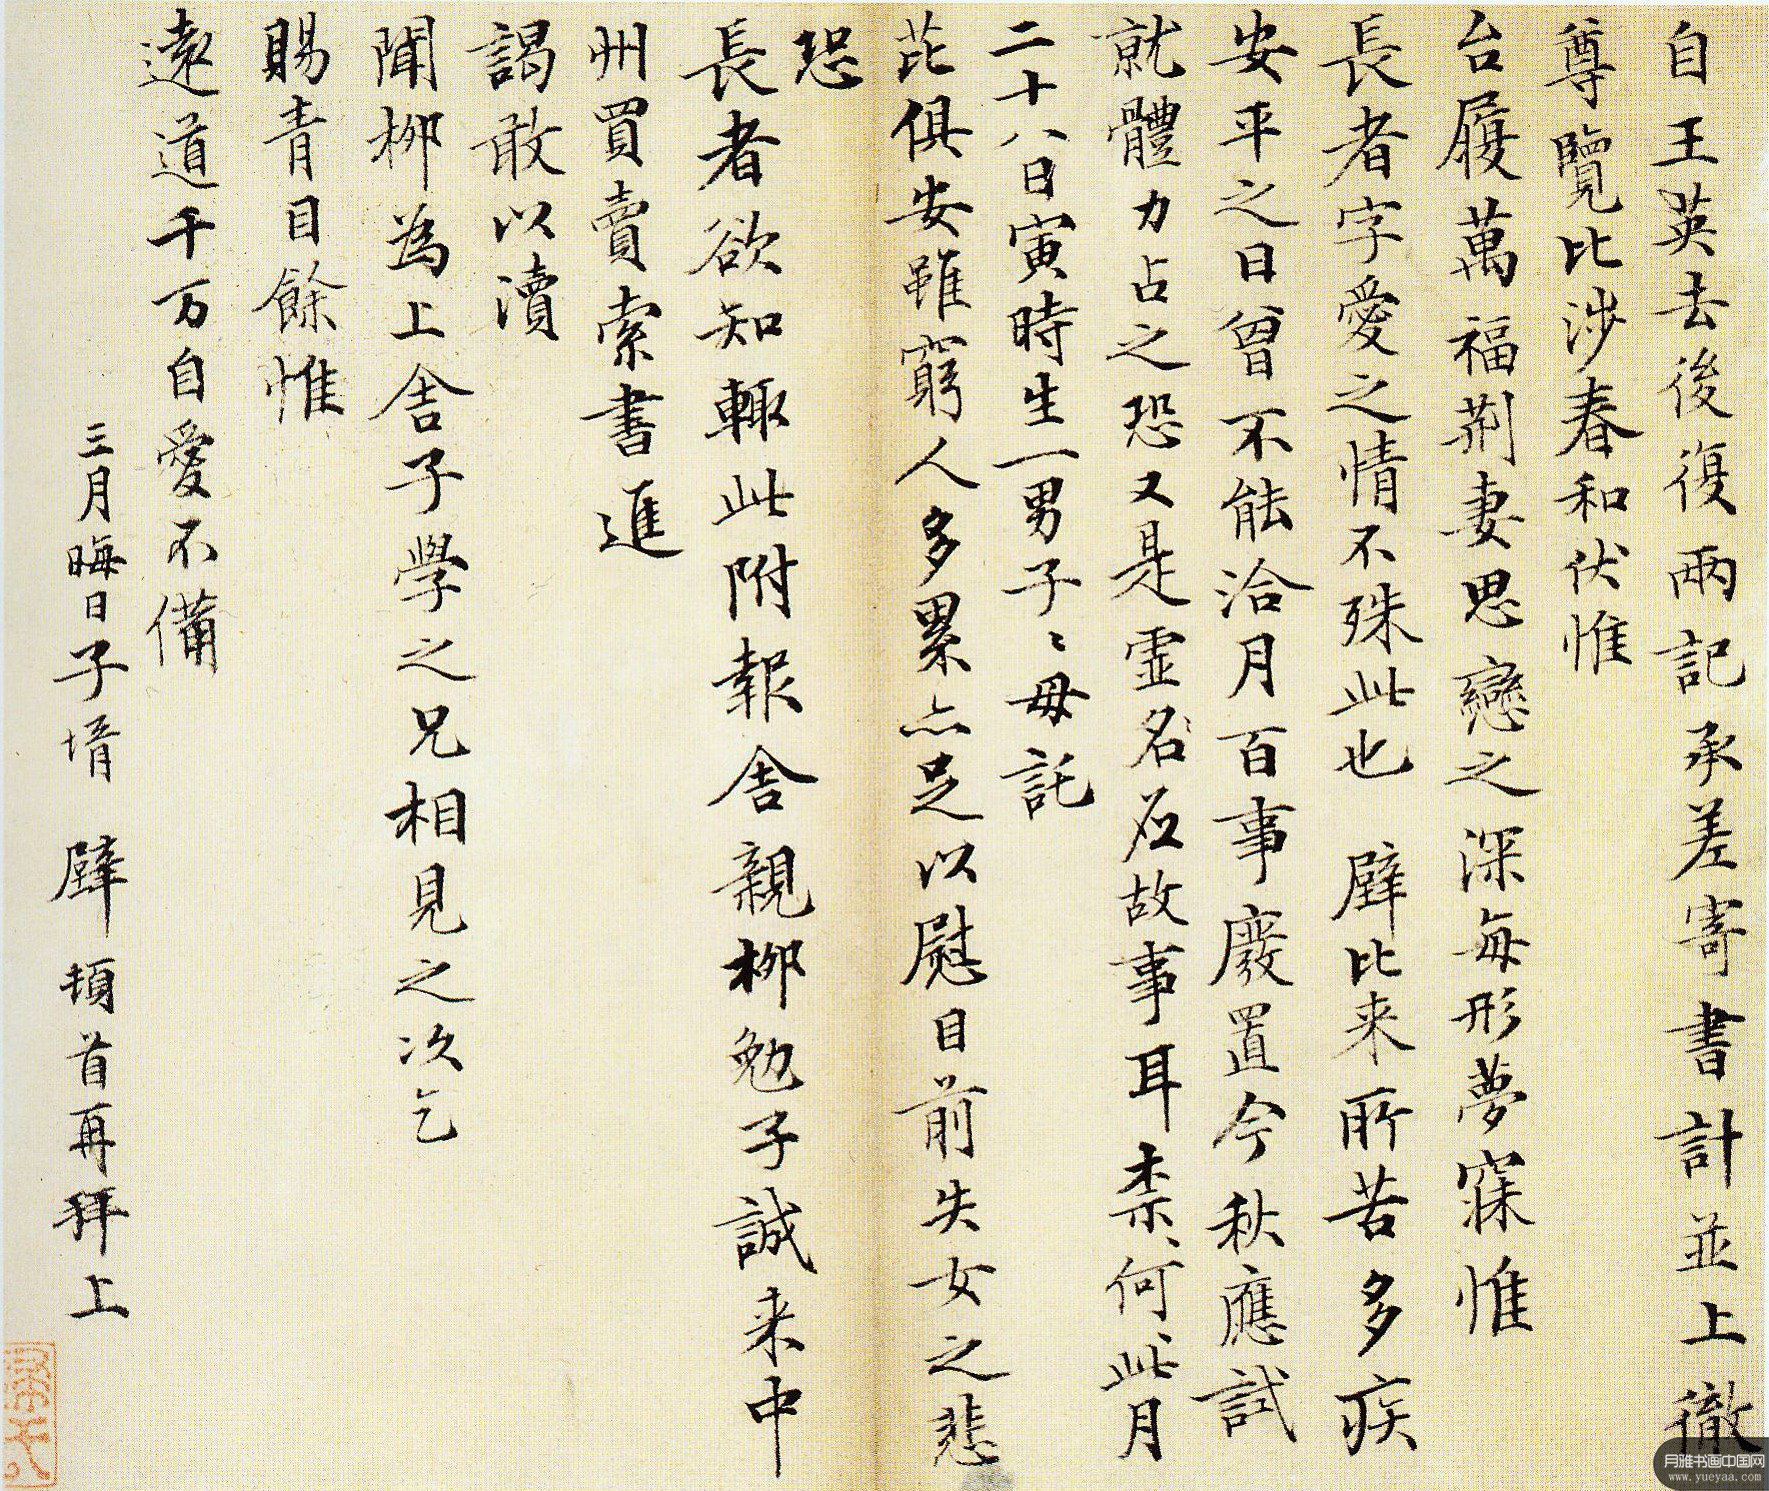 自王英去後復兩記承差寄書計並上徹
尊覽比涉春和伏惟
台履萬福荊妻思戀之深每形夢寐惟
長者字愛之情不殊此也 璧比来所苦多疾
安平之日曾不能洽月百事廢置今秋應試
就體力占之恐又是虛名应故事耳柰何〻此月
二十八日寅時生一男子〻母託
芘俱安雖窮人多累亦足以慰目前失女之悲
恐
長者欲知輙此附報舍親栁勉子誠来中
州買賣索書進
謁敢以瀆
聞栁為上舍子學之兄相見之次乞
賜青目餘惟
遠道千万自愛不備
三月晦日子壻 璧 頓首再拜上
月雅书画中国网
www.yueyaa.com